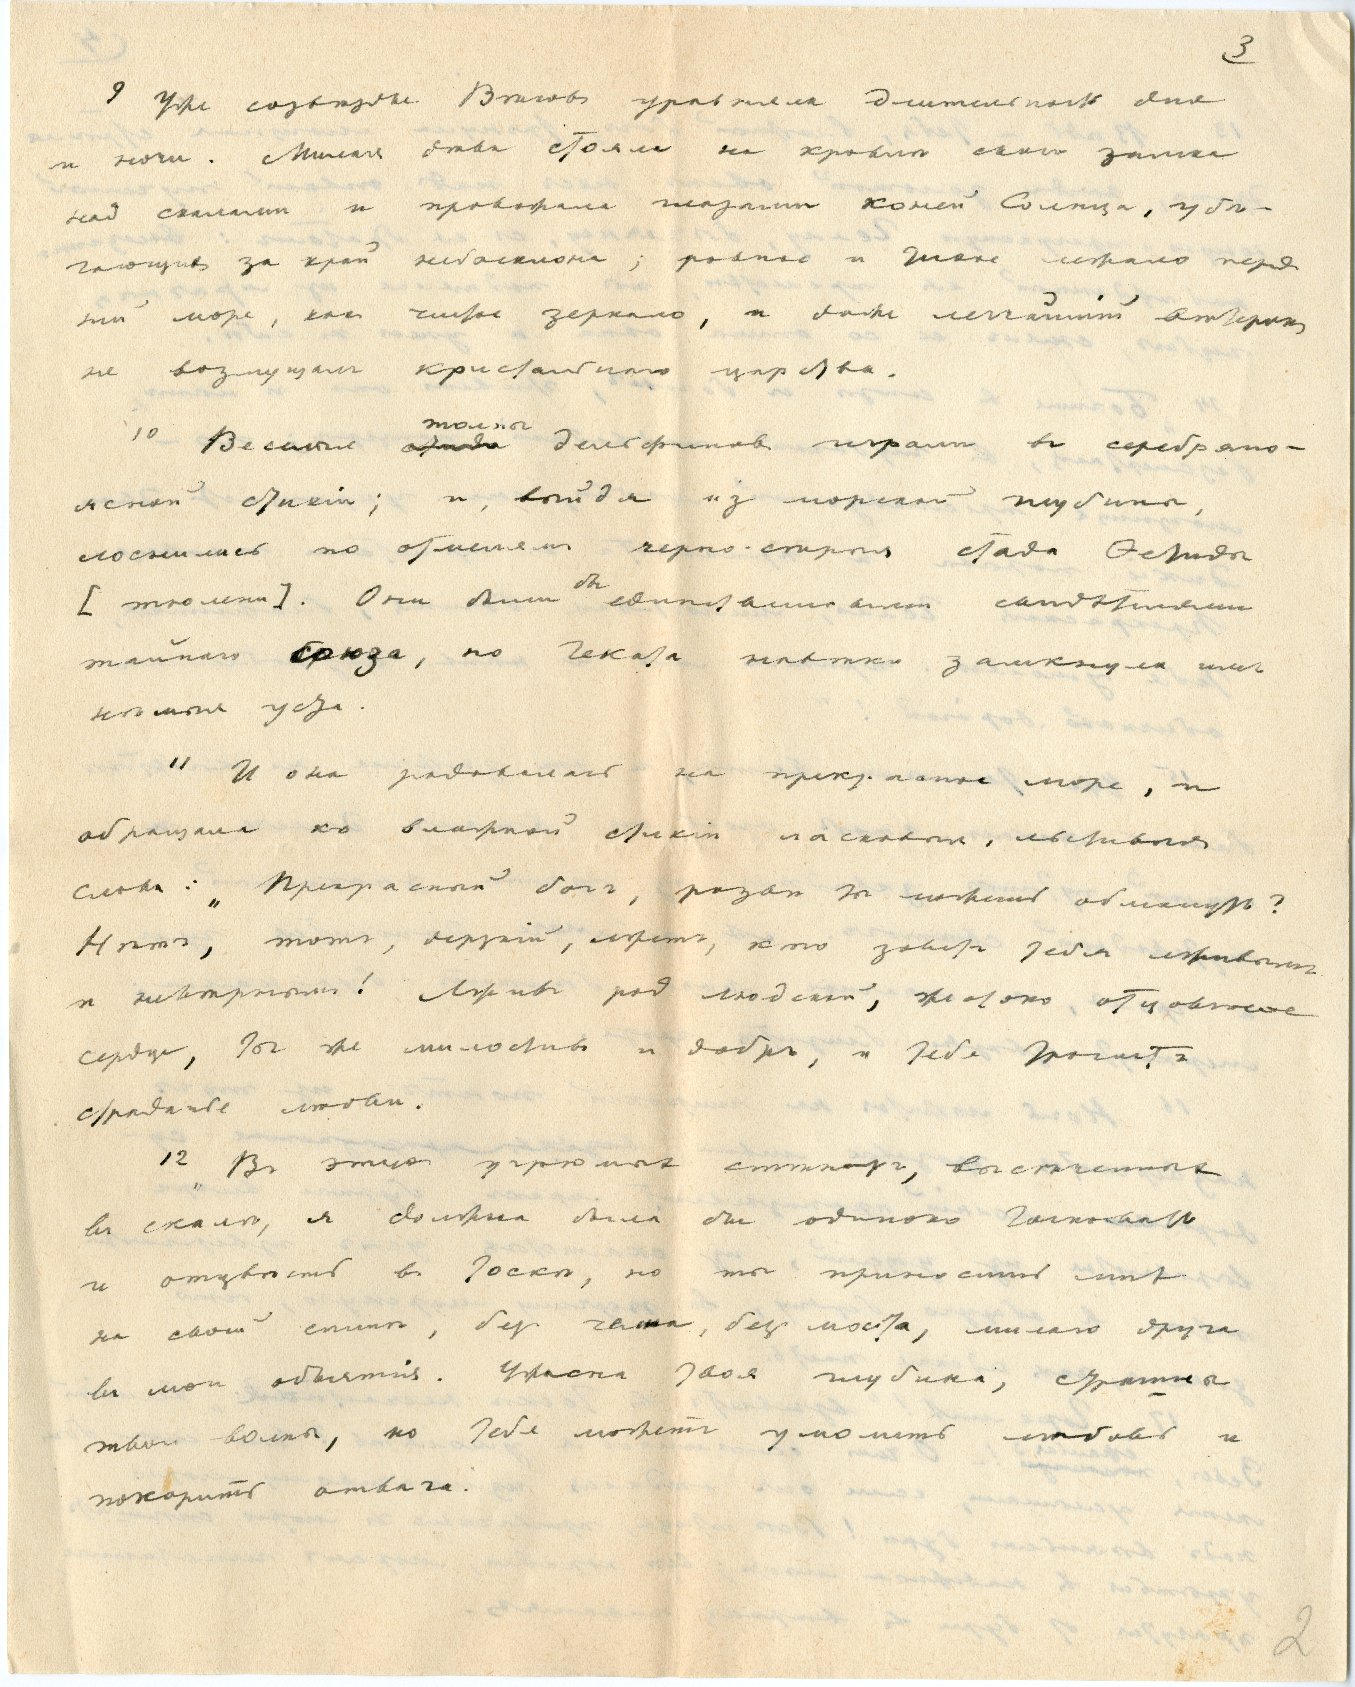 3
9 Уже созвѣздіе Вѣсовъ уравняло длительность дня
и ночи. Милая дѣва стояла на кровлѣ своего замка
над скалами и провожала глазами коней Солнца, убѣ-
гающихъ за край небосклона; ровное и тихое лежало перед
ней море, как чистое зеркало, и даже легчайшій вѣтерокъ
не возмущалъ кристальнаго царства.
10 Веселые толпы дельфиновъ играли въ серебряно-
ясной стихіи; и, выйдя из морской глубины,
лоснились по отмелямъ черно-сѣрыя стада Ѳетиды
[тюлени]. Они были бы единственными свидѣтелями
тайнаго союза, но Геката навѣки замкнула имъ
нѣмыя уста.
11 И она радовалась на прекрасное море, и
обращала ко влажной стихіи ласковыя, льстивыя
слова: „Прекрасный богъ, развѣ ты можешь обмануть?
Нѣтъ, тотъ, дерзкій, лжетъ, кто зоветъ тебя лживымъ
и невѣрнымъ! Лживъ род людской, жестоко отцовское
сердце, ты же милостивъ и добръ, и тебя трогаетъ
страданье любви.
12 „Въ этихъ угрюмыхъ стѣнахъ, высѣченныхъ
въ скалѣ, я должна была бы одиноко тосковать
и отцвѣсть въ тоскѣ, но ты приносишь мнѣ
на своей спинѣ, без челна, без моста, милаго друга
въ мои объятія. Ужасна твоя глубина, страшны
твои волны, но тебя можетъ умолить любовь и
покорить отвага.
2